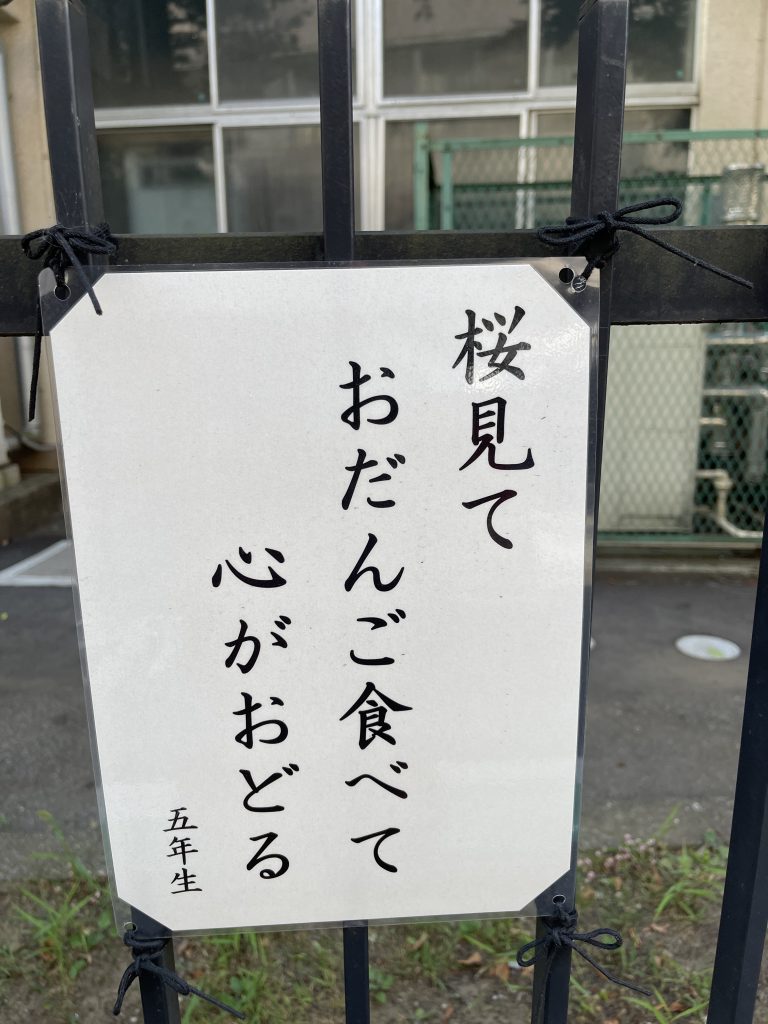 桜見て
おだんご食べて
心がおどる
五年生